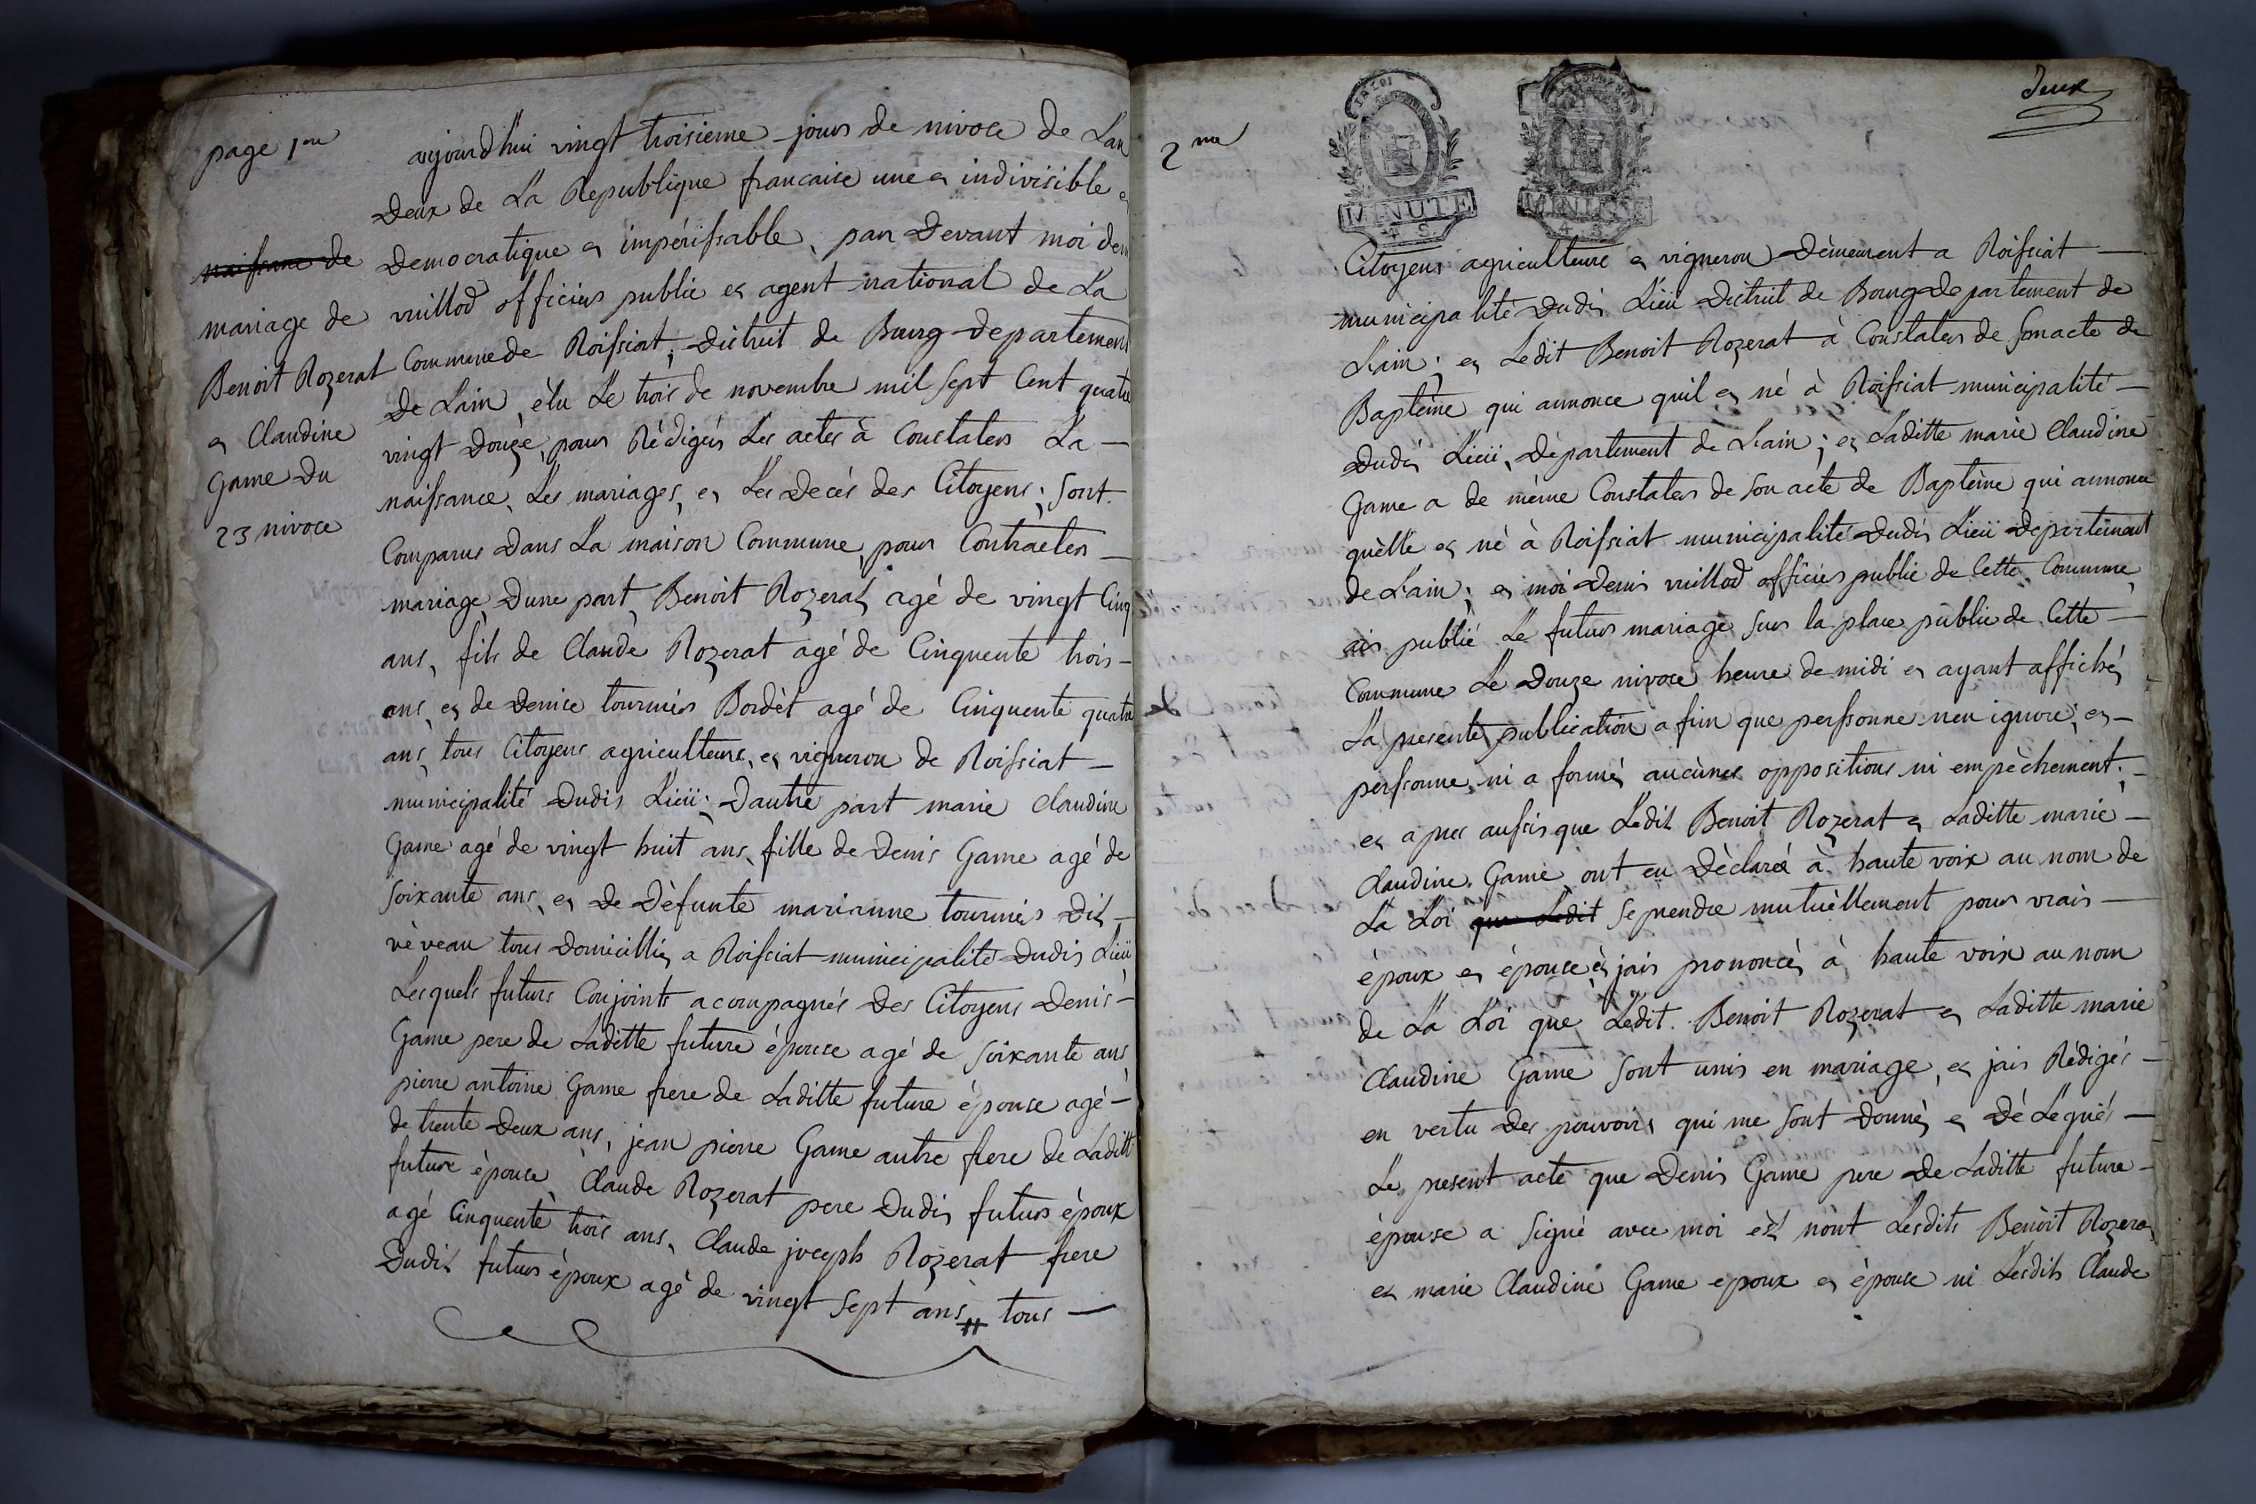 page 1re
naissance de
mariage de
Benoit Rozerat
et Claudine
Game du
23 nivoce
aujourdhui vingt troisieme jours de nivoce de Lan
Deux de La Republique francaise une et indivisible et
Democratique et impérissable, par Devant moi deni
vuillod officier public et agent national de La
Commune de Roissiat, District de Bourg departement
De Lain, élu Le trois de novembre mil sept Cent quatre
vingt Douze, pour Rédigér Les actes à Constater La
naissance, Les mariages, et Les Decés des Citoyens; sont
Comparus Dans La maison Commune pour Contracter
mariage Dune part Benoit Rozerat agé de vingt Cinq
ans, fils de Claude Rozerat agé de Cinquente trois
ans, et de Denise tournier Bordèt agé de Cinquente quatre
ans, tous Citoyens agriculteurs, et vigneron de Roissiat
municipalité Dudit Lieü; Dautre part marie Claudine
Game agé de vingt huit ans, fille de Denis Game agé de
soixante ans, et De Dèfunte marianne tournier Dit
vèveau tous Domicillié a Roissiat municipalité Dudit Lieü
Lesquels futurs Conjoints acompagnés Des Citoyens Denis
Game pere de Laditte future épouse agé de soixante ans
pierre antoine Game frere de Laditte future épouse agé
de trente Deux ans, jean pierre Game autre frere de Laditte
future èpouse, Claude Rozerat pere Dudit futurs époux
agé Cinquente trois ans, Claude joceph Rozerat frere
Dudit futurs époux agé de vingt sept ans, tous
2me
Deux
MINUTE
4 S.
MINUTE
4 S.
Citoyens agriculteurs et vigneron Dèmeurant a Roissiat
municipalité Dudit Lieü District de Bourg Departement de
Lain; et Ledit Benoit Rozerat à Constater de son acte de
Baptème qui annonce quil et né à Roissiat municipalité
Dudit Lieü, Département de Lain; et Laditte marie Claudine
Game a de mème Constater de son acte de Baptème qui annonce
quèlle et né à Roissiat municipalité Dudit Lieü Departement
de Lain; et moi Denis vuillod officier public de Cette Commune
ais publié Le futurs mariage sur la place public de Cette
Commune Le Douze nivoce heure de midi et ayant affiché
La presente publication a fin que perssonne nen ignore, et
perssonne ni a formé aucùnes oppositions ni empèchement;
et apres aussis que Ledit Benoit Rozerat et Laditte marie
Claudine Game ont eu Dèclaré à haute voix au nom de
La Loi que Ledit se prendre mutuèllement pour vrais
époux et épouse et jais prononcé à haute voix au nom
de La Loi que Ledit Benoit Rozerat et Laditte marie
Claudine Game sont unis en mariage, et jais Rédigés
en vertu Des pouvoirs qui me sont Donné et Dé Legués
Le present acte que Denis Game pere de Laditte future
épouse a signé avec moi èt nònt Lesdits Benòit Rozerat
et marie Claudine Game epoux et èpouse ni Lesdits Claude